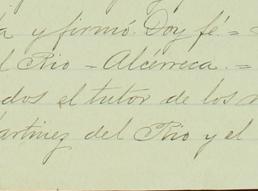 y firmó. Doy fé =
l Rio - Alcérreca. =
dos el tutor de los
artinez del Rio y el